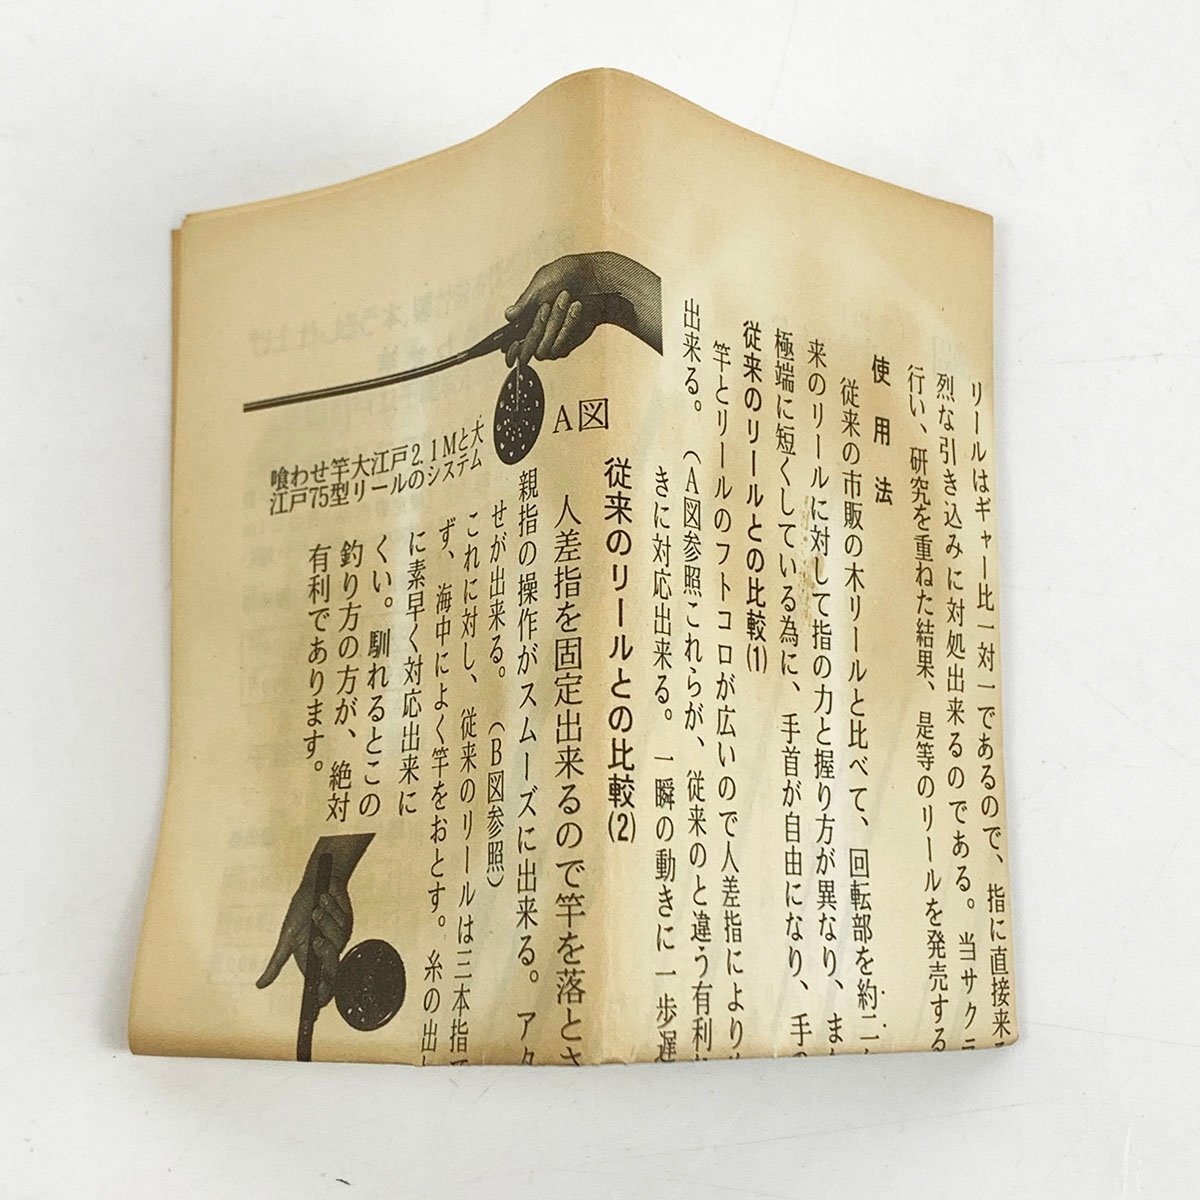 リールはギャー比一対一であるので、指に直接来
烈な引き込みに対処出来るのである。当サクラ
行い、研究を重ねた結果、是等のリールを発売する
使用法
従来の市販の木リールと比べて、回転部を約二
来のリールに対して指の力と握り方が異なり、ま
極端に短くしている為に、手首が自由になり、手の
従来のリールとの比較(1)
竿とリールのフトコロが広いので人差指により
出来る。(A図参照これらが、従来のと違う有利
きに対応出来る。一瞬の動きに一歩遅
従来のリールとの比較(2)
人差指を固定出来るので竿を落とさ
親指の操作がスムーズに出来る。アタ
せが出来る。(B図参照)
これに対し、従来のリールは三本指で
ず、海中によく竿をおとす。糸の出し
に素早く対応出来に
くい。馴れるとこの
釣り方の方が、絶対
有利であります。
A図
喰わせ竿大江戸2.1Mと大
江戸75型リールのシステム